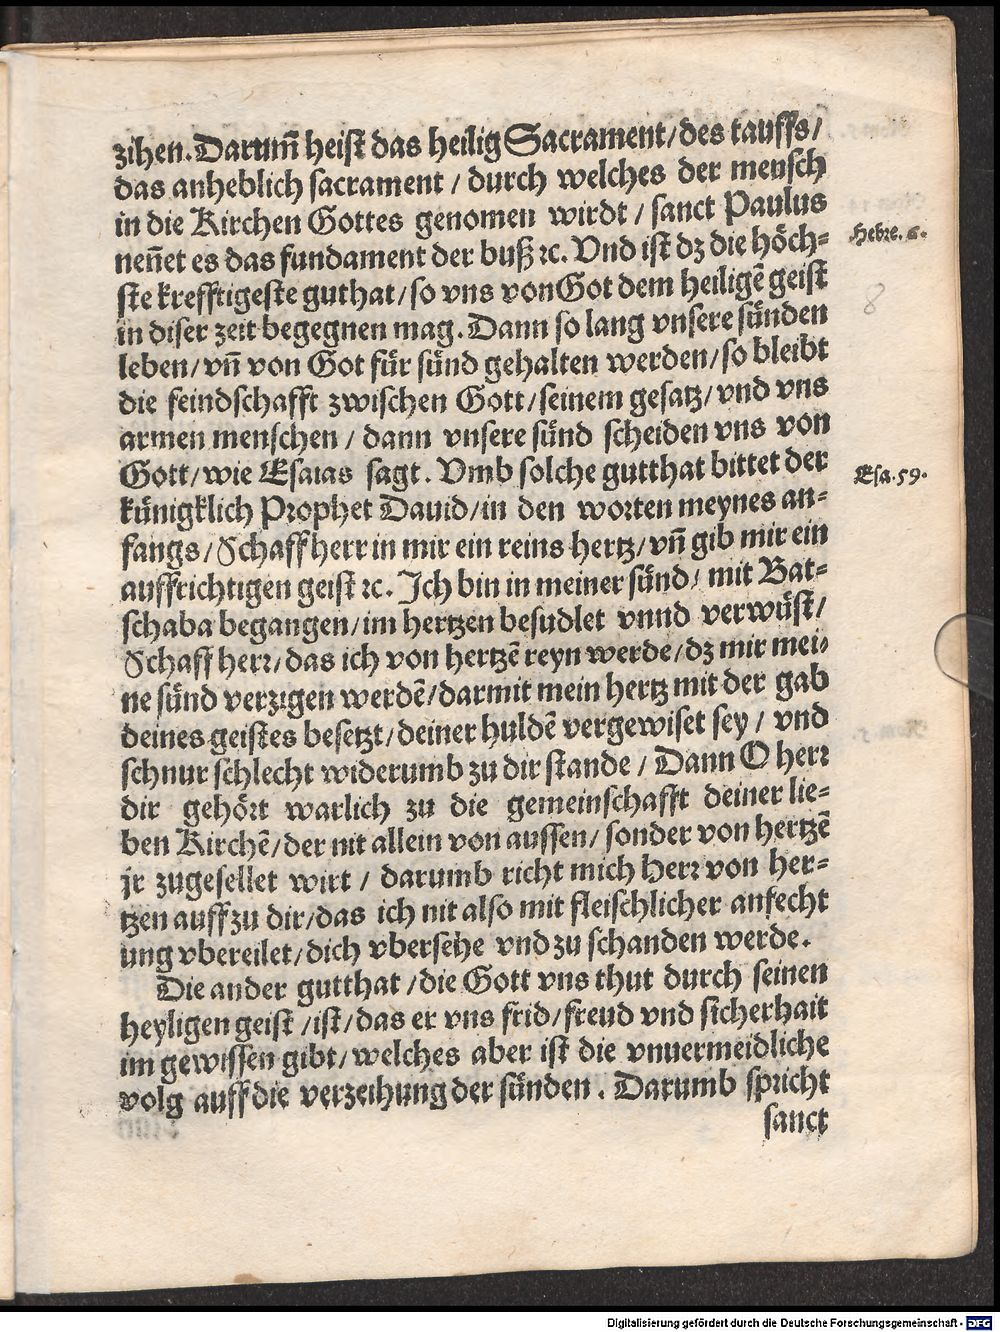 zihen. Darum̃ heist das heilig Sacrament / des tauffs /
das anheblich sacrament / durch welches der mensch
in die Kirchen Gottes genomen wirdt / sanct Paulus
Hebre. 6.
nen̄et es das fundament der buß ꝛc. Vnd ist dz die höch=
ste krefftigeste guthat / so vns von Got dem heiligē geist
8
in diser zeit begegnen mag. Dann so lang vnsere sünden
leben / vn̄ von Got für sünd gehalten werden / so bleibt
die feindschafft zwischen Gott / seinem gesatz / vnd vns
armen menschen / dann vnsere sünd scheiden vns von
Gott / wie Esaias sagt. Vmb solche gutthat bittet der
Esa. 59.
künigklich Prophet Dauid / in den worten meynes an=
fangs / Schaff herr in mir ein reins hertz / vn̄ gib mir ein
auffrichtigen geist ꝛc. Ich bin in meiner sünd / mit Bat=
schaba begangen / im hertzen besudlet vnnd verwüst /
Schaff herr / das ich von hertzē reyn werde / dz mir mei=
ne sünd verzigen werdē / darmit mein hertz mit der gab
deines geistes besetzt / deiner huldē vergewiset sey / vnd
schnur schlecht widerumb zu dir stande / Dann O herr
dir gehört warlich zu die gemeinschafft deiner lie=
ben Kirchē / der nit allein von aussen / sonder von hertzē
jr zugesellet wirt / darumb richt mich Herr von her=
tzen auff zu dir / das ich nit also mit fleischlicher anfecht
ung vbereilet / dich vbersehe vnd zu schanden werde.
Die ander gutthat / die Gott vns thut durch seinen
heyligen geist / ist / das er vns frid / freud vnd sicherhait
im gewissen gibt / welches aber ist die vnuermeidliche
volg auff die verzeihung der sünden. Darumb spricht
sanct
Digitalisierung gefördert durch die Deutsche Forschungsgemeinschaft - DFG